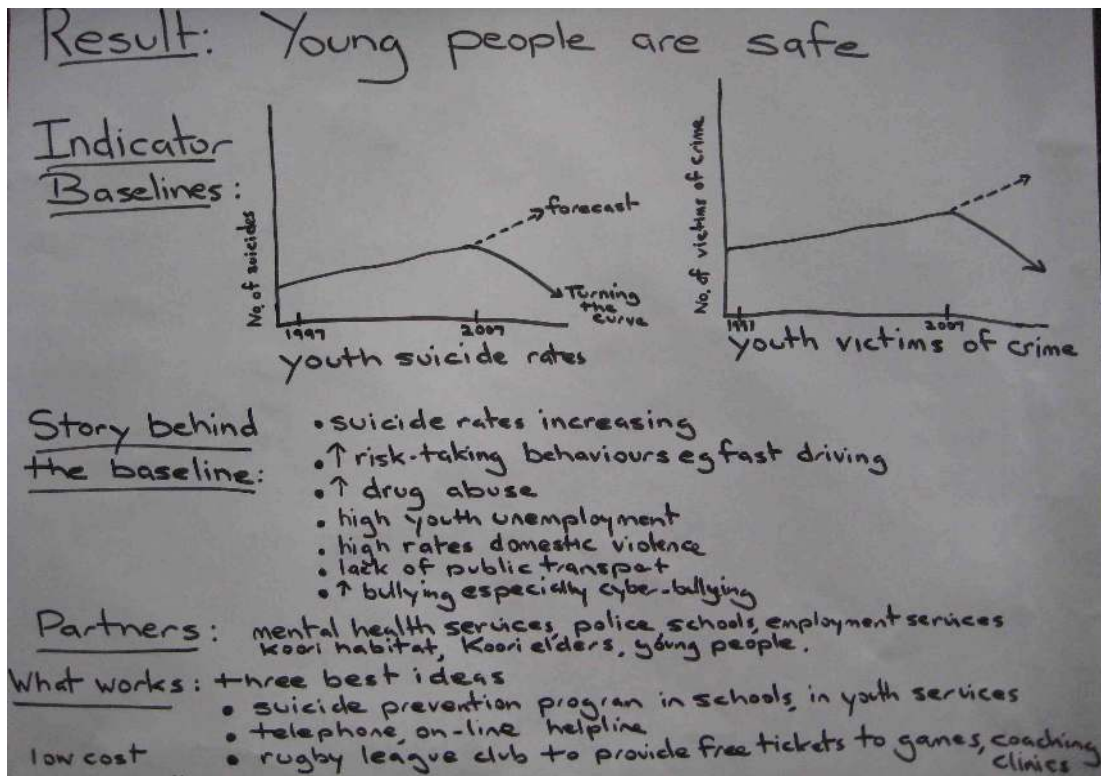 Result: Young people are safe
Indicator
Baselines:
No. of suicides
forecast
Turning
the
curve
1997
2007
youth suicide rates
No. of victims of crime
1997
2007
youth victims of crime
Story behind
the baseline:
• suicide rates increasing
• ↑ risk-taking behaviours eg fast driving
• ↑ drug abuse
• high youth unemployment
• high rates domestic violence
• lack of public transpat
• ↑ bullying especially cyber-bullying
Partners: mental health services, police schools, employment services
Koori habitat, Koori elders, young people.
What works: three best ideas
• suicide prevention program in schools, in youth services
• telephone, on-line helpline
low cost • rugby league club to provide free tickets to games, coaching
clinics